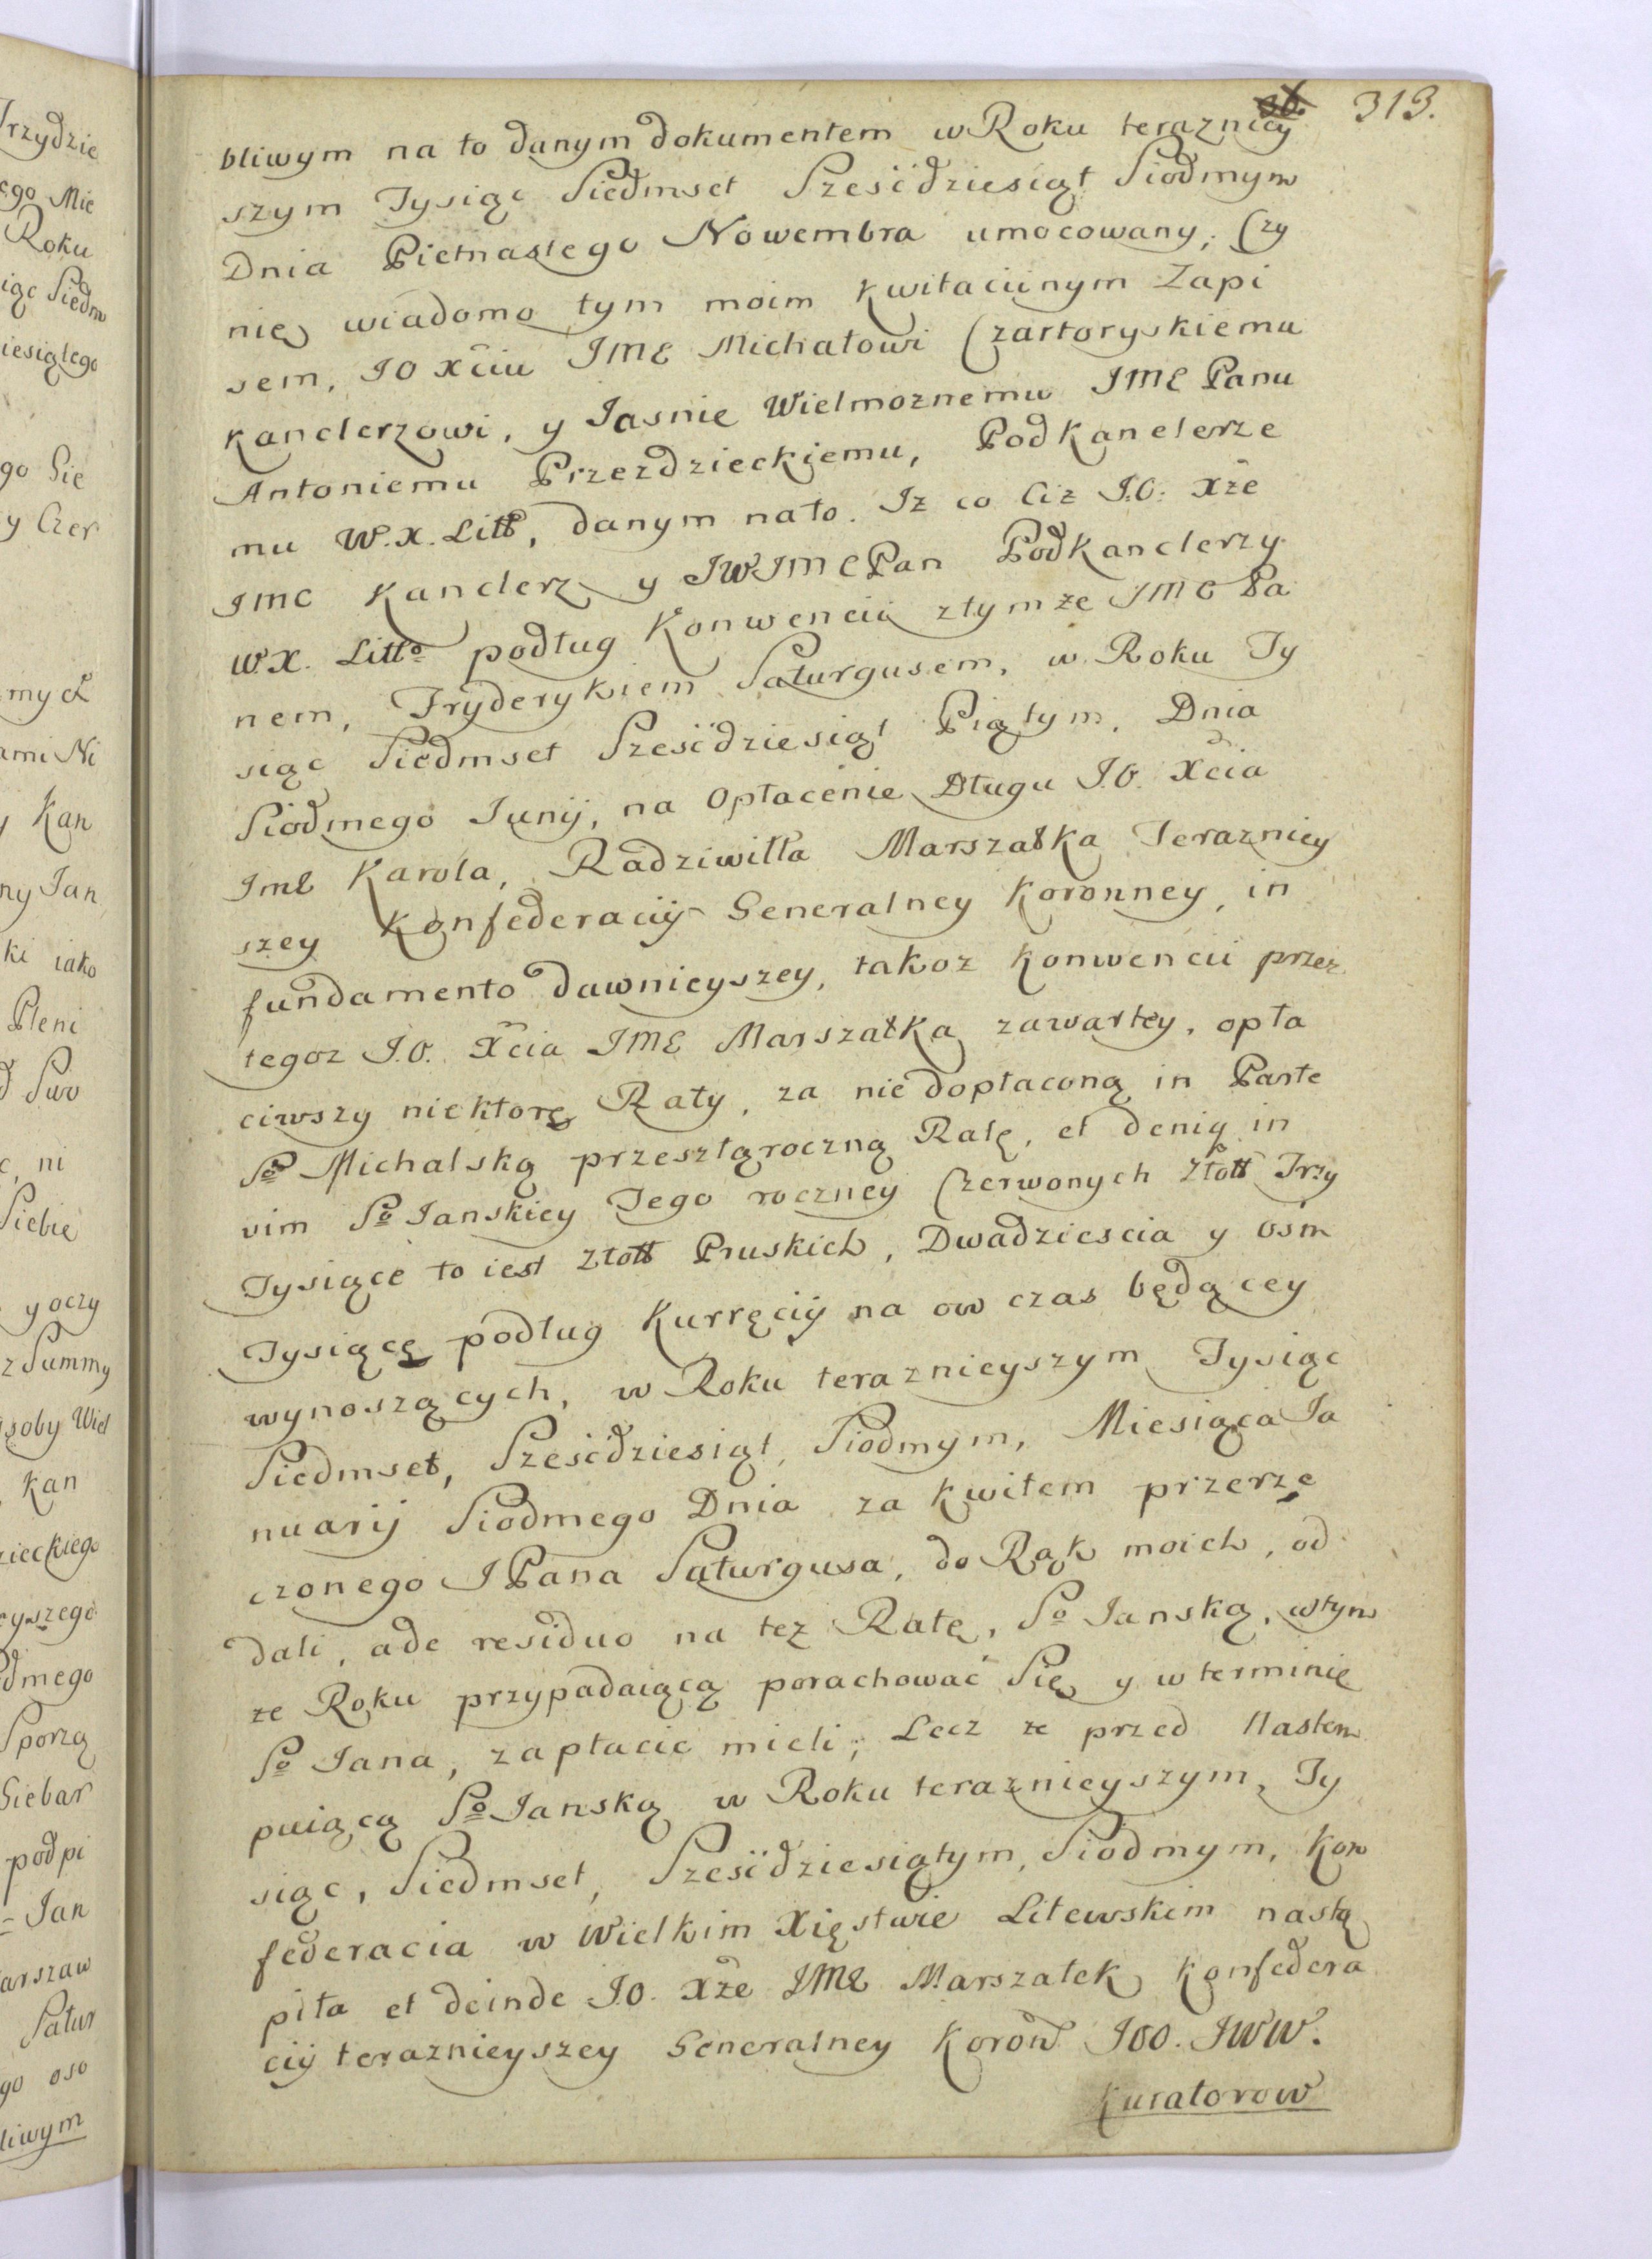 313.
bliwym na to danym dokumentem w Roku terazniey
szym Tysiąc Siedmset Sześćdziesiąt Siodmym
Dnia Pietnastego Nowembra umocowany, Czy
nię wiadomo tym moim kwitaciinym Zapi
sem, JO Xciu JMC Michałowi Czartoryskiemu
Kanclerzowi, y Jasnie Wielmoznemu JMC Panu
Antoniemu Przezdzieckiemu, PodKanclerze
mu W. X. Litt, danym na to. Iz co Ciz J.O. Xze
JMC Kanclerz y JWJMC Pan PodKanclerzy
W.X. Litto podług Konwencii z tymze JMC Pa
nem, Fryderykiem Saturgusem, w Roku Ty
siąc Siedmset Sześćdziesiąt Piątym, Dnia
Siodmego Junij, na Opłacenie Długu J.O. Xcia
Jmc Karola, Radziwiłła Marszałka Terazniey
szey Konfederacij Generalney Koronney, in
fundamento dawnieyszey, takoz Konwencii przez
tegoz J.O. Xcia JMC Marszałka zawartey, opła
ciwszy niektorę Raty, za niedopłaconą in Parte
So Michalską przeszłąroczną Ratę, et deniq in
vim So Janskiey Tego roczney Czerwonych Złott Trzy
Tysiące to iest Złott Pruskich, Dwadziescia y osm
Tysiącę podług Kurręcij na ow czas będącey
wynoszących, w Roku teraznieyszym Tysiąc
Siedmset, Sześćdziesiąt, Siodmym, Miesiąca Ja
nuarij Siodmego Dnia za kwitem przerze
czonego JPana Saturgusa, do Rąk moich, od
dali, a de residuo na tęz Ratę, So Janską, w tym
ze Roku przypadaiącą porachować Się y w terminie
So Jana, zapłacic mieli; Lecz ze przed Nastem
puiącą So Janską w Roku teraznieyszym, Ty
siąc, Siedmset, Sześćdziesiątym, Siodmym, Kon
federacia w Wielkim Xięstwie Litewskim nastą
piła et deinde J.O. Xze JMC Marszałek Konfedera
cij teraznieyszey Generalney Koron JOO. JWW.
Kuratorow